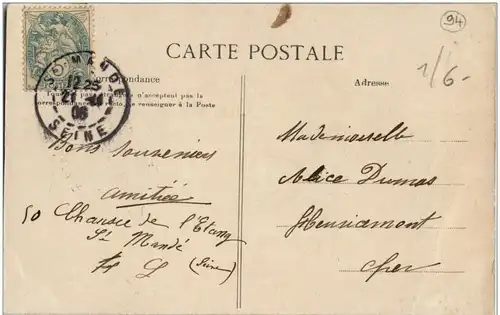 94
CARTE POSTALE
Correspondance
Tous les pays étrangers n'acceptent pas la
correspondance au recto, se renseigner à la Poste
Adresse
1/6-
ST MANDÉ
12 25
06
SEINE
Bons Souvenirs
amitiée
50 Chaussée de l'Etang
St Mandé
(Seine)
Mademoiselle
Alice Dumas
Henrichemont
Cher